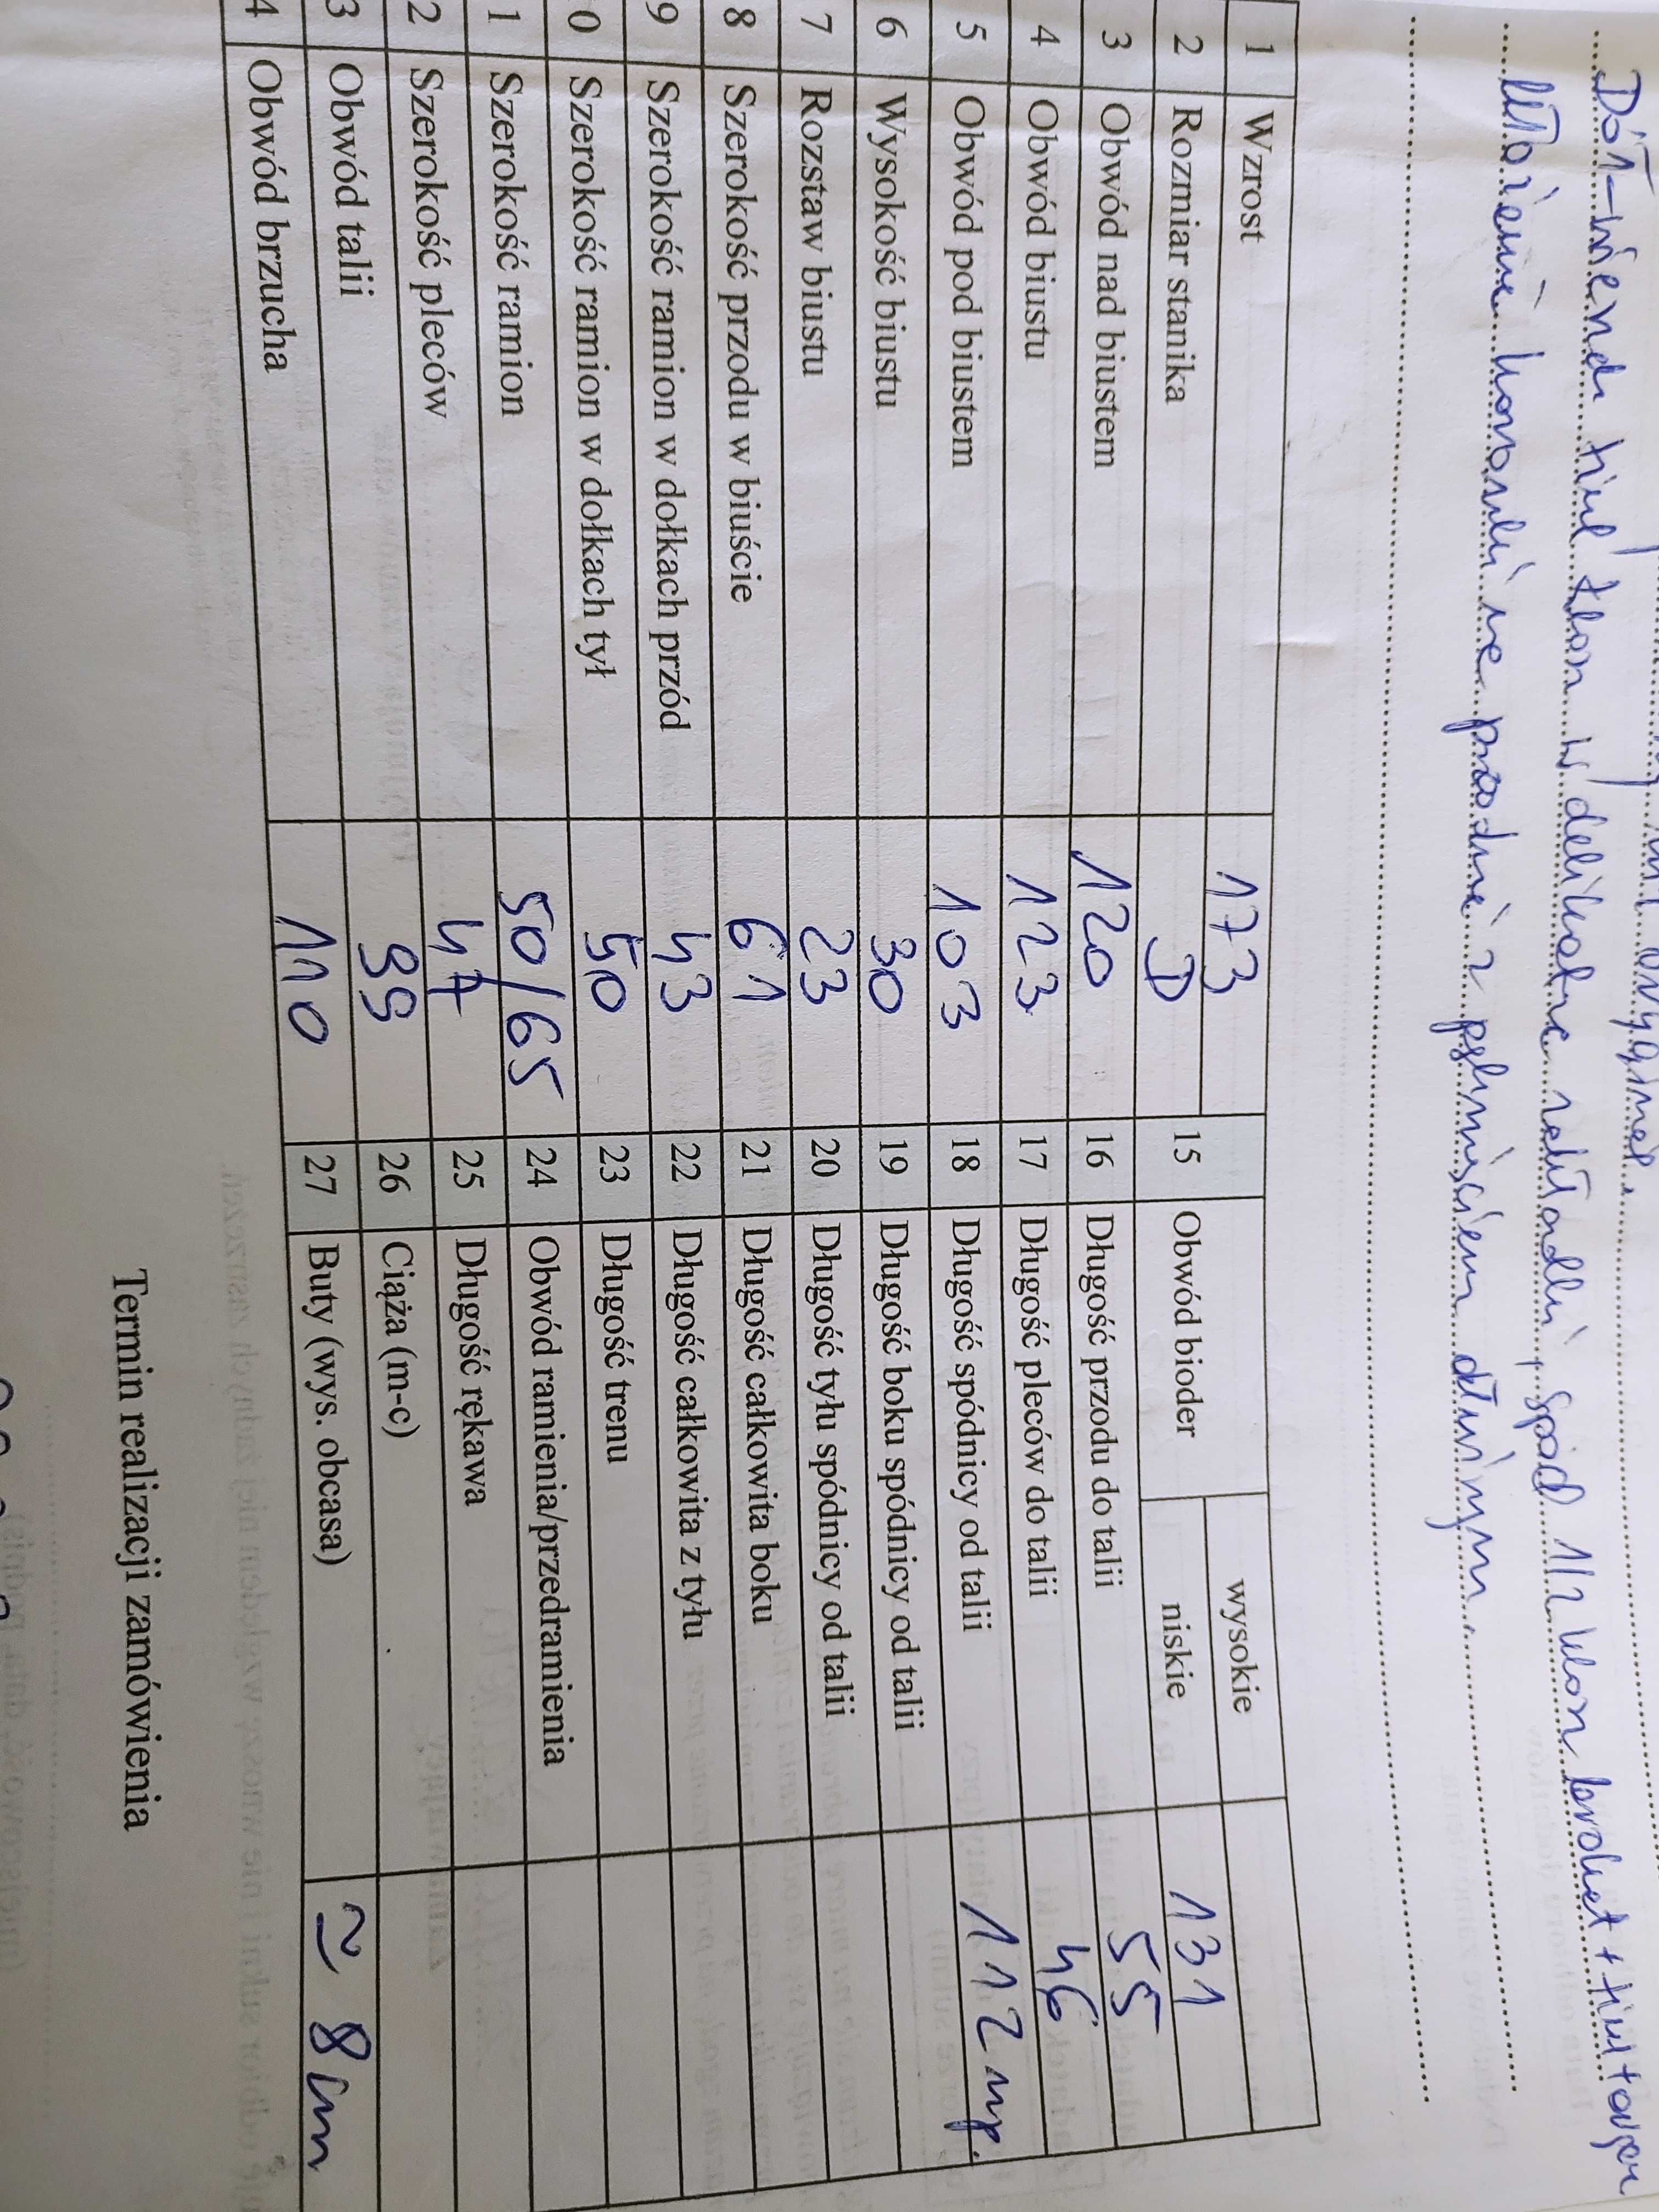 oryginał.
Dół - wierzch tiul klosz w delikatne zakładki, spód 1/2 klosz brokat + tiul
koronki na przodzie z dłuższym.
1 Wzrost 173 15 Obwód bioder wysokie
2 Rozmiar stanika D niskie 131
3 Obwód nad biustem 120 16 Długość przodu do talii 55
4 Obwód biustu 123 17 Długość pleców do talii 46
5 Obwód pod biustem 103 18 Długość spódnicy od talii 112 np.
6 Wysokość biustu 30 19 Długość boku spódnicy od talii
7 Rozstaw biustu 23 20 Długość tyłu spódnicy od talii
8 Szerokość przodu w biuście 61 21 Długość całkowita boku
9 Szerokość ramion w dołkach przód 43 22 Długość całkowita z tyłu
0 Szerokość ramion w dołkach tył 50 23 Długość trenu
1 Szerokość ramion 50/65 24 Obwód ramienia/przedramienia
2 Szerokość pleców 47 25 Długość rękawa
3 Obwód talii 99 26 Ciąża (m-c)
4 Obwód brzucha 110 27 Buty (wys. obcasa) ~ 8cm
Termin realizacji zamówienia